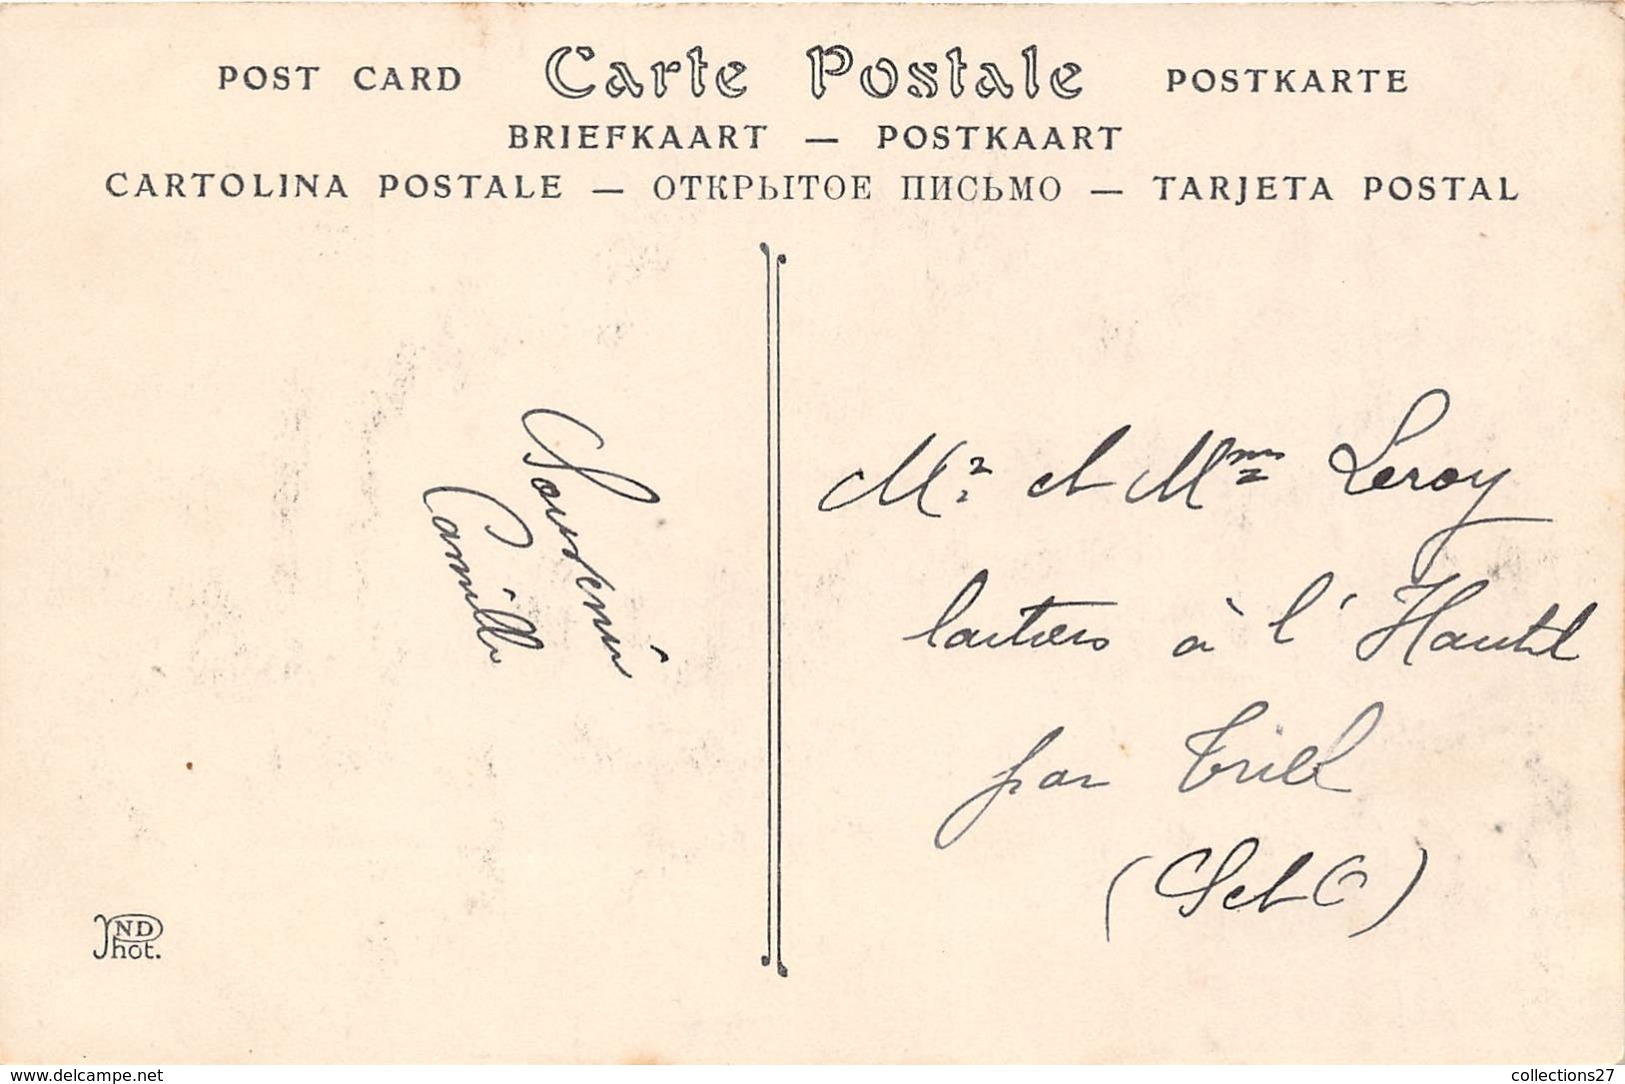 POST CARD Carte Postale POSTKARTE
BRIEFKAART — POSTKAART
CARTOLINA POSTALE — ОТКРЫТОЕ ПИСЬМО — TARJETA POSTAL
Souvenir
Camille
Mr et Mme Leroy
laitiers à l'Hautil
par Triel
(S et O)
ND Phot.
www.delcampe.net
collections27